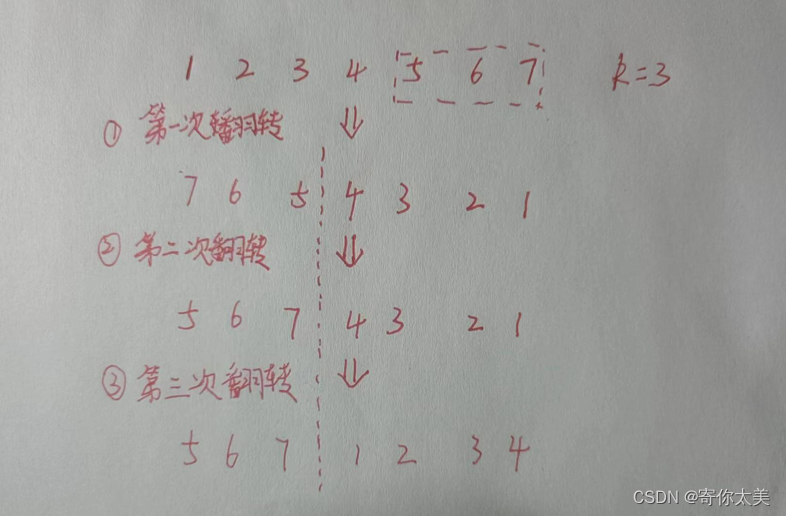 1 2 3 4 5 6 7 k=3
① 第一次翻转
7 6 5 4 3 2 1
② 第二次翻转
5 6 7 4 3 2 1
③ 第三次翻转
5 6 7 1 2 3 4
CSDN @寄你太美